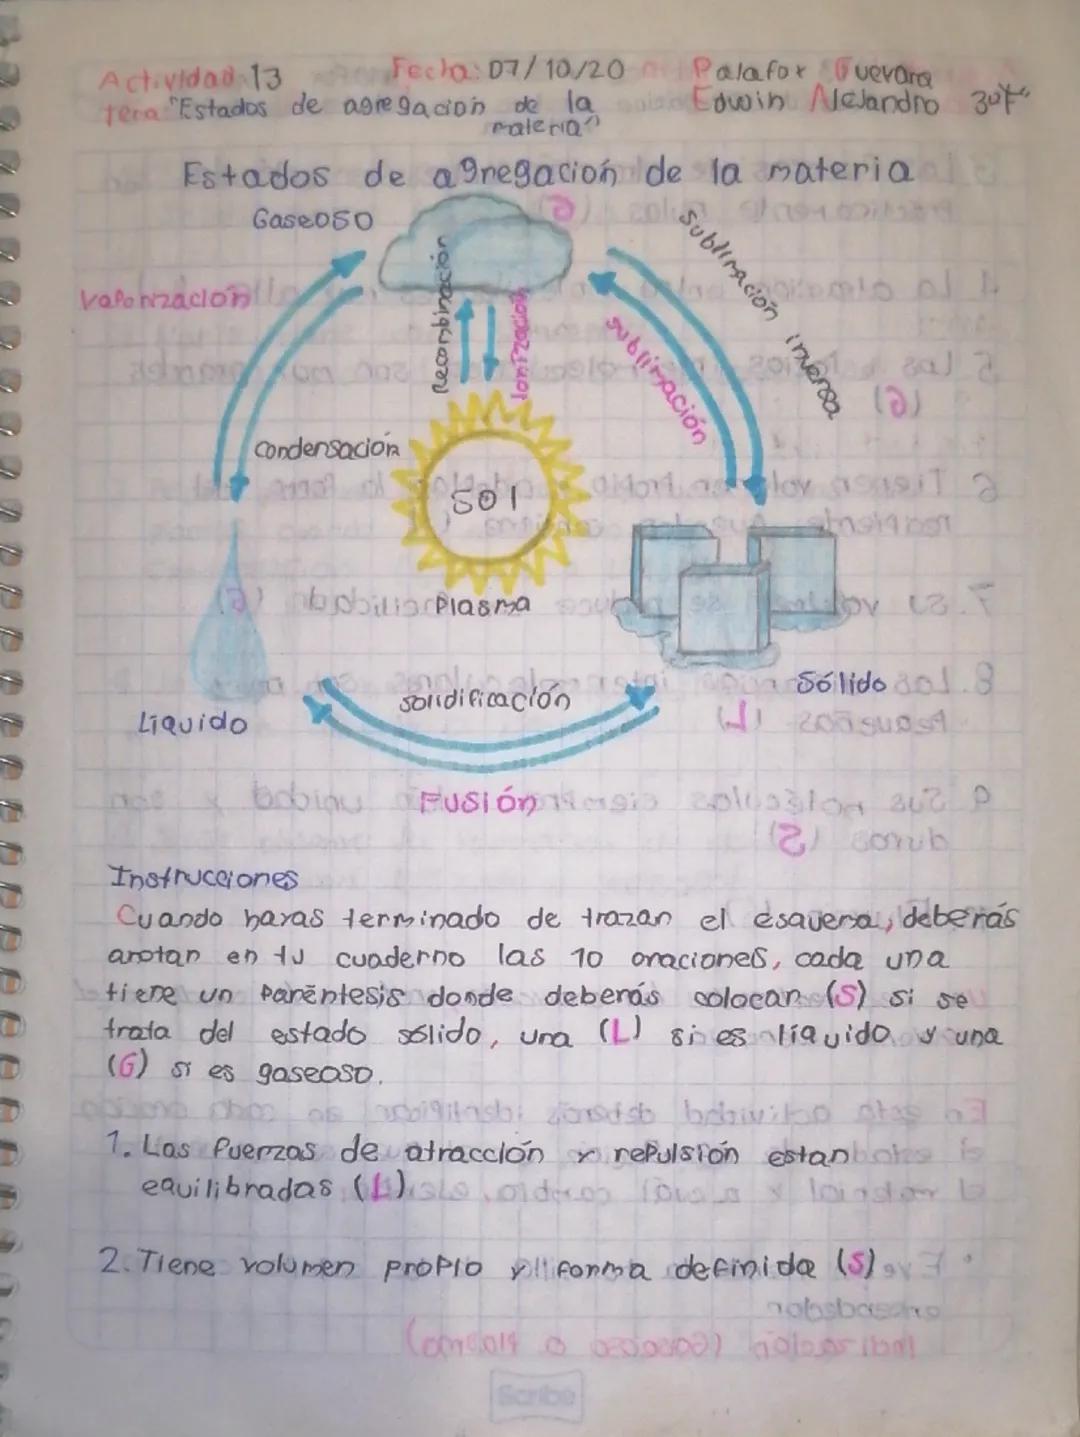 Actividad 13 Fecha: 07/10/20 Palafox Guevara
Tema "Estados de agregacion de la Edwin Alejandro 3°F"
materia"
Estados de agregación de la materia
Gaseoso
Vaporización
Recombinación
Ionización
Sublimación inversa
Sublimación
Condensación
Sol
Plasma
Sólido
Solidificación
Líquido
Fusión
Instrucciones
Cuando hayas terminado de trazar el esquema, deberás
anotar en tu cuaderno las 10 oraciones, cada una
tiene un Paréntesis donde deberás colocar (S) si se
trata del estado sólido, una (L) si es líquido y una
(G) si es gaseoso.
1. Las fuerzas de atracción y repulsión estan
equilibradas (L)
2. Tiene volumen propio y forma definida (S)
Scribe